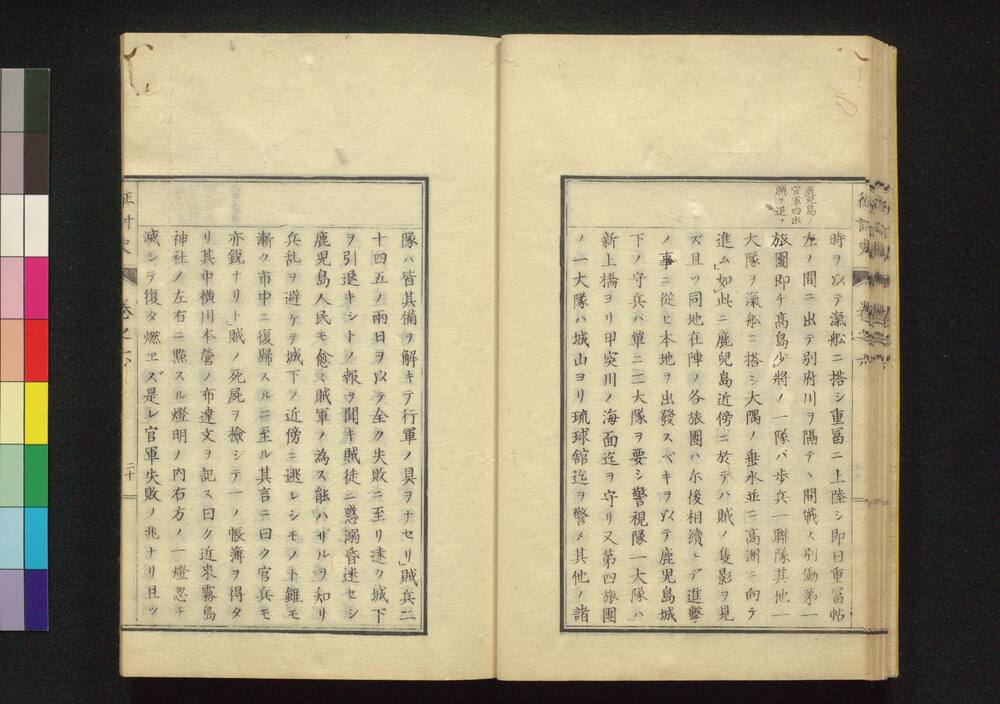 鹿児島ノ
官軍四出
賊ヲ追フ
時ヲ以テ滊舩ニ搭シ重冨ニ上陸シ即日重冨帖
左ノ間ニ出テ別府川ヲ隔テヽ開戦ス別働第一
旅團即チ髙島少将ノ一隊バ歩兵一聯隊其他一
大隊ヲ滊舩ニ搭シ大隅ノ垂水並ニ髙洲ニ向ラ
進ム」如此ニ鹿兒島近傍ニ於テハ賊ノ隻影ヲ見
ズ且ツ同地在陣ノ各旅團ハ尓後相續シデ進擊
ノ事ニ從ヒ本地ヲ出發スベキヲ以テ鹿児島城
下ノ守兵ハ單ニ二大隊ヲ要シ警視隊一大隊ハ
新上橋ヨリ甲突川ノ海面迄ヲ守リ又第四旅團
ノ一大隊ハ城山ヨリ琉球舘迄ヲ警メ其他ノ諸
隊ハ皆其備ヲ解キテ行軍ノ具ヲナセリ」賊兵二
十四五ノ兩日ヲ以テ全ク失敗ニ至リ遠ク城下
ヲ引退キシトノ報ヲ聞キ賊徒ニ惑溺昏迷セシ
鹿児島人民モ愈〻賊軍ノ為ス能ハザルヲ知リ
兵乱ヲ避ケテ城下ノ近傍ニ逃レシモノト雖モ
漸ク市中ニ復歸スルニ至ル其言ニ曰ク官兵モ
亦銳ナリト」賊ノ死屍ヲ檢シテ一ノ帳簿ヲ得タ
リ其中横川本營ノ布達文ヲ記ス曰ク近来霧島
神社ノ左右ニ㸃スル燈明ノ内右方ノ一燈忽チ
滅シテ復タ燃ヱズ是レ官軍失敗ノ兆ナリ且ツ
征討史
卷之六
二十